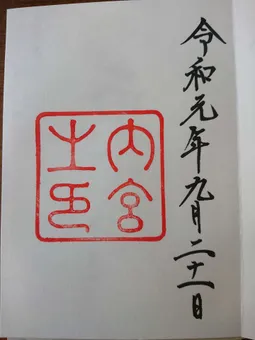 令和元年九月二十一日
内宮
之印